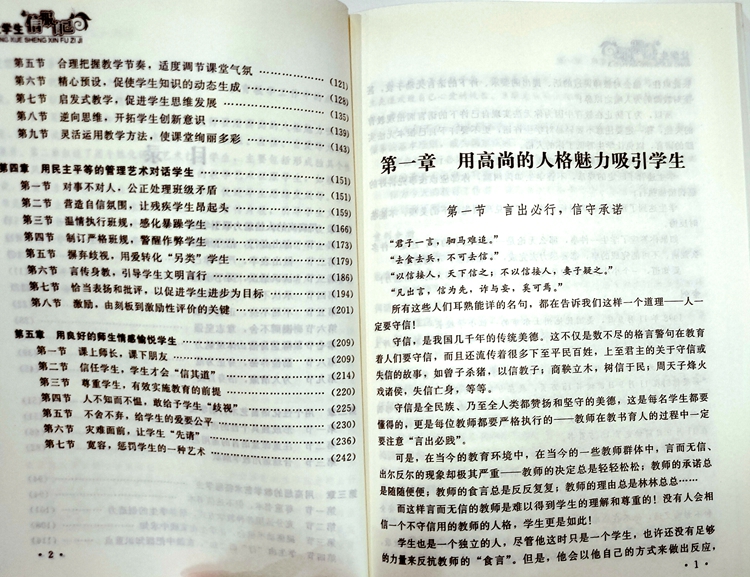 学生信服记
NG XUE SHENG XIN FU ZI JI
第五节 合理把握教学节奏，适度调节课堂气氛 (121)
第六节 精心预设，促使学生知识的动态生成 (128)
第七节 启发式教学，促进学生思维发展 (135)
第八节 逆向思维，开拓学生创新意识 (139)
第九节 灵活运用教学方法，使课堂绚丽多彩 (143)
第四章 用民主平等的管理艺术对话学生 (151)
第一节 对事不对人，公正处理班级矛盾 (151)
第二节 营造自信氛围，让残疾学生昂起头 (159)
第三节 温情执行班规，感化暴躁学生 (166)
第四节 制订严格班规，警醒作弊学生 (173)
第五节 摒弃歧视，用爱转化“另类”学生 (179)
第六节 言传身教，引导学生文明言行 (186)
第七节 恰当表扬和批评，以促进学生进步为目标 (194)
第八节 激励，由刻板到激励性评价的关键 (201)
第五章 用良好的师生情感愉悦学生 (209)
第一节 课上师长，课下朋友 (209)
第二节 信任学生，学生才会“信其道” (214)
第三节 尊重学生，有效实施教育的前提 (220)
第四节 人不知而不愠，敢给予学生“歧视” (225)
第五节 不舍不弃，给学生的爱要公平 (230)
第六节 灾难面前，让学生“先请” (236)
第七节 宽容，惩罚学生的一种艺术 (242)
·2·
第一章 用高尚的人格魅力吸引学生
第一节 言出必行，信守承诺
“君子一言，驷马难追。”
“去食去兵，不可去信。”
“以信接人，天下信之；不以信接人，妻子疑之。”
“凡出言，信为先，诈与妄，奚可焉。”
所有这些人们耳熟能详的名句，都在告诉我们这样一个道理——人一
定要守信！
守信，是我国几千年的传统美德。这不仅是数不尽的格言警句在教育
着人们要守信，而且还流传着很多下至平民百姓，上至君主的关于守信或
失信的故事，如曾子杀猪，以信教子；商鞅立木，树信于民；周天子烽火
戏诸侯，失信亡身，等等。
守信是全民族、乃至全人类都赞扬和坚守的美德，这是每名学生都要
懂得的，更是每位教师都要严格执行的——教师在教书育人的过程中一定
要注意“言出必践”。
可是，在当今的教育环境中，在当今的一些教师群体中，言而无信、
出尔反尔的现象却极其严重——教师的决定总是轻轻松松；教师的承诺总
是随随便便；教师的食言总是反反复复；教师的理由总是林林总总……
而这样言而无信的教师是难以得到学生的理解和尊重的！没有人会相
信一个不守信用的教师的人格，学生更是如此！
学生也是一个独立的人，尽管他这时只是一个学生，也许还没有足够
的力量来反抗教师的“食言”。但是，他会以他自己的方式来做出反应，
·1·